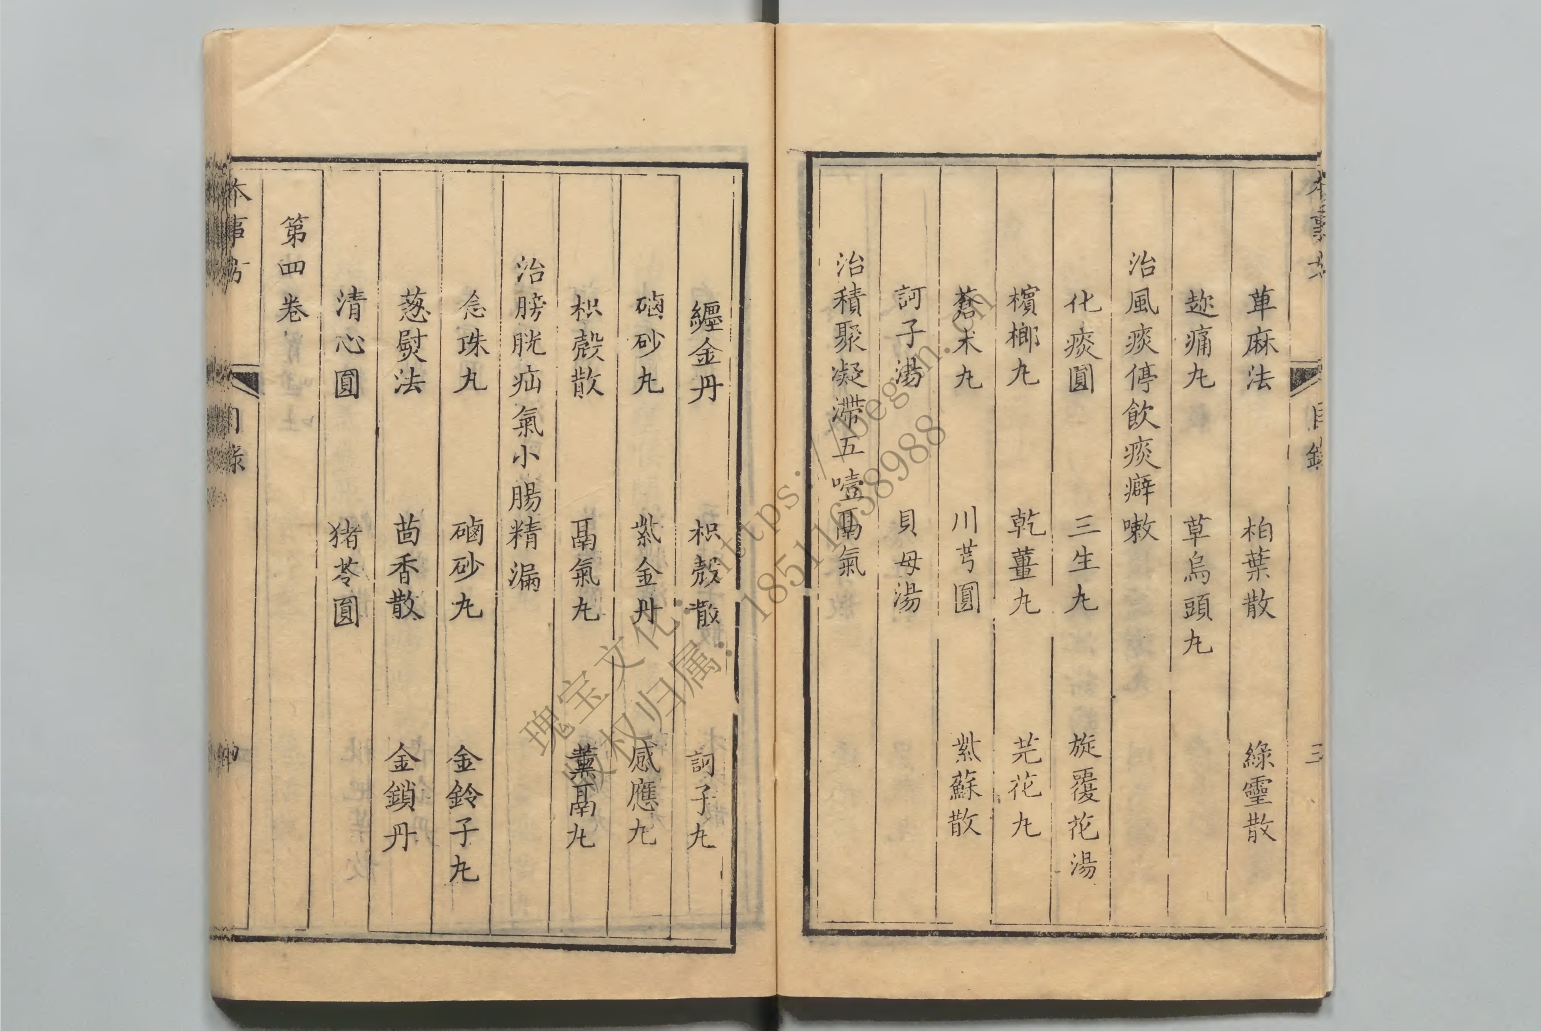 萆麻法 柏葉散 綠靈散
趂痛丸 草烏頭丸
治風痰停飲痰癖嗽
化痰圓 三生丸 旋覆花湯
檳榔丸 乾薑丸 芫花丸
蒼朮丸 川芎圓 紫蘇散
訶子湯 貝母湯
治積聚凝滯五噎鬲氣
目錄 三
纏金丹 枳殼散 訶子丸
硇砂丸 紫金丹 感應丸
枳殼散 鬲氣丸 薰鬲丸
治膀胱疝氣小腸精漏
念珠丸 硇砂丸 金鈴子丸
葱熨法 茴香散 金鎖丹
清心圓 猪苓圓
第四卷
本事方 目錄
瑰宝文化:https://begm.cn
版权归属:18511638988